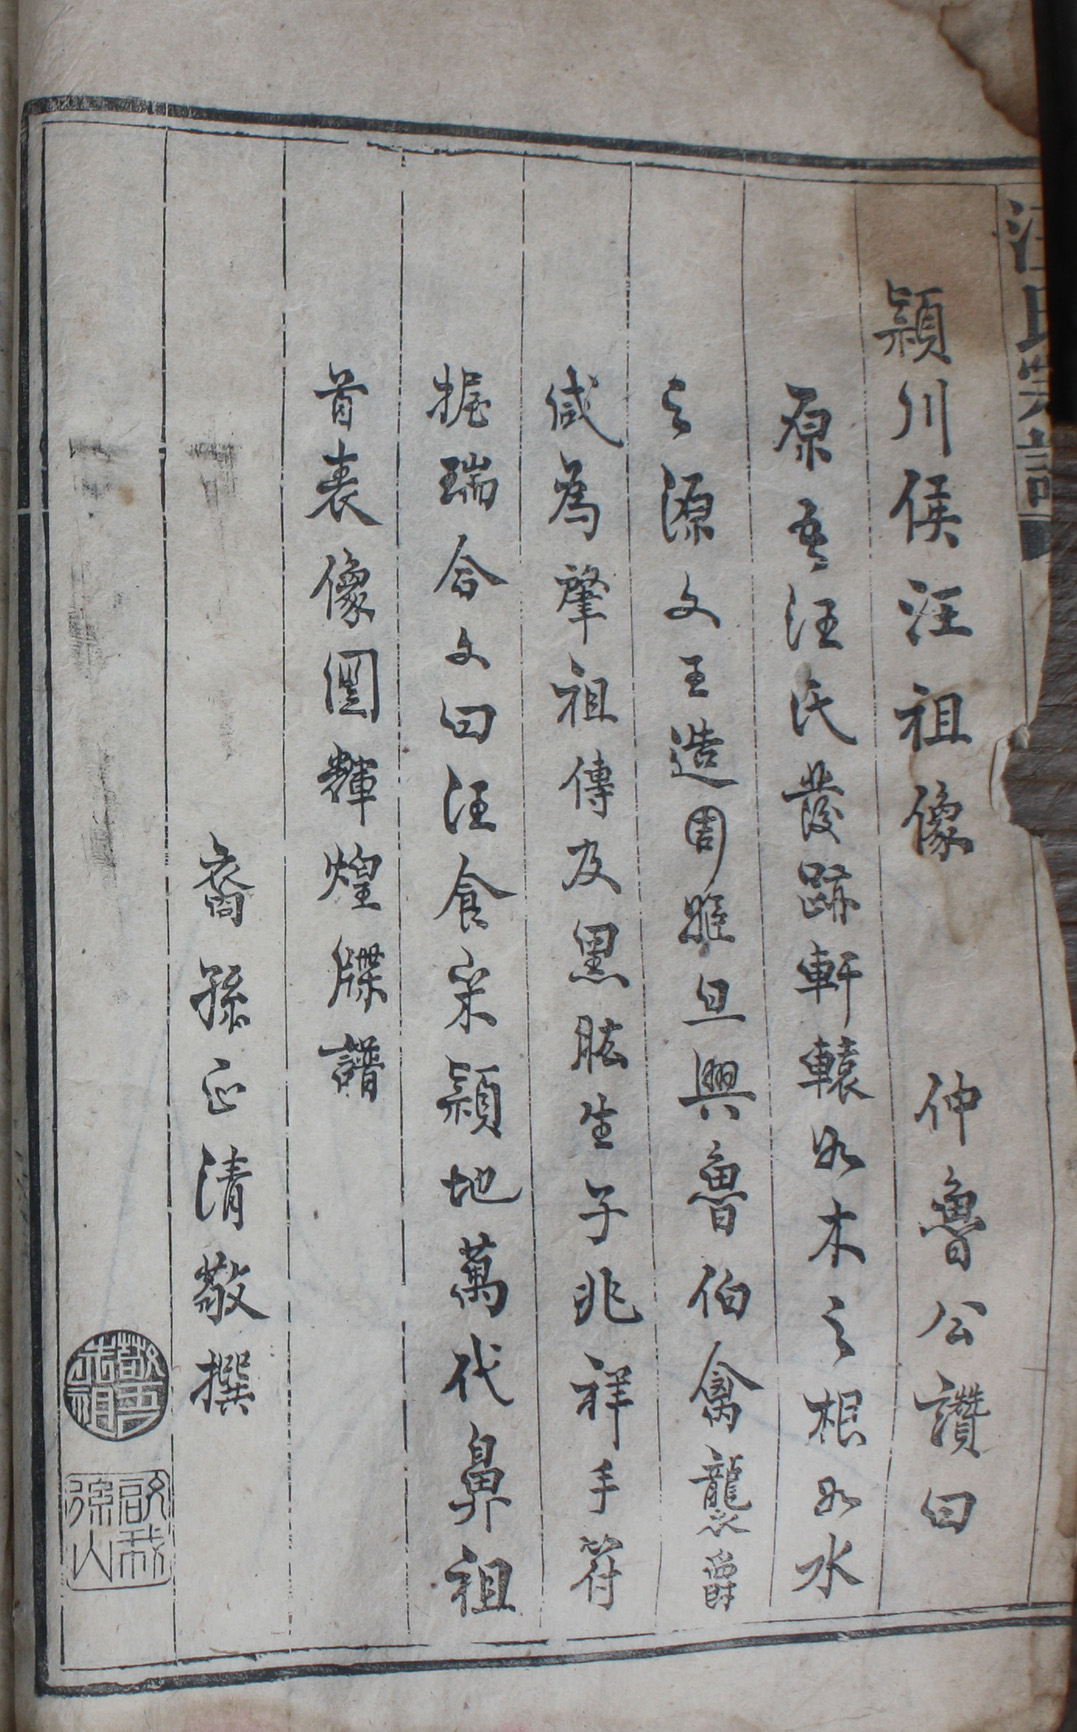 汪氏宗譜
潁川侯汪祖像 仲魯公讚曰
原吾汪氏發跡軒轅如木之根如水
之源文王造周雖旦興魯伯禽襲爵
咸為肇祖傳及黑肱生子兆祥手符
握瑞合文曰汪食采潁地萬代鼻祖
首表像圖輝煌牒譜
裔孫正清敬撰